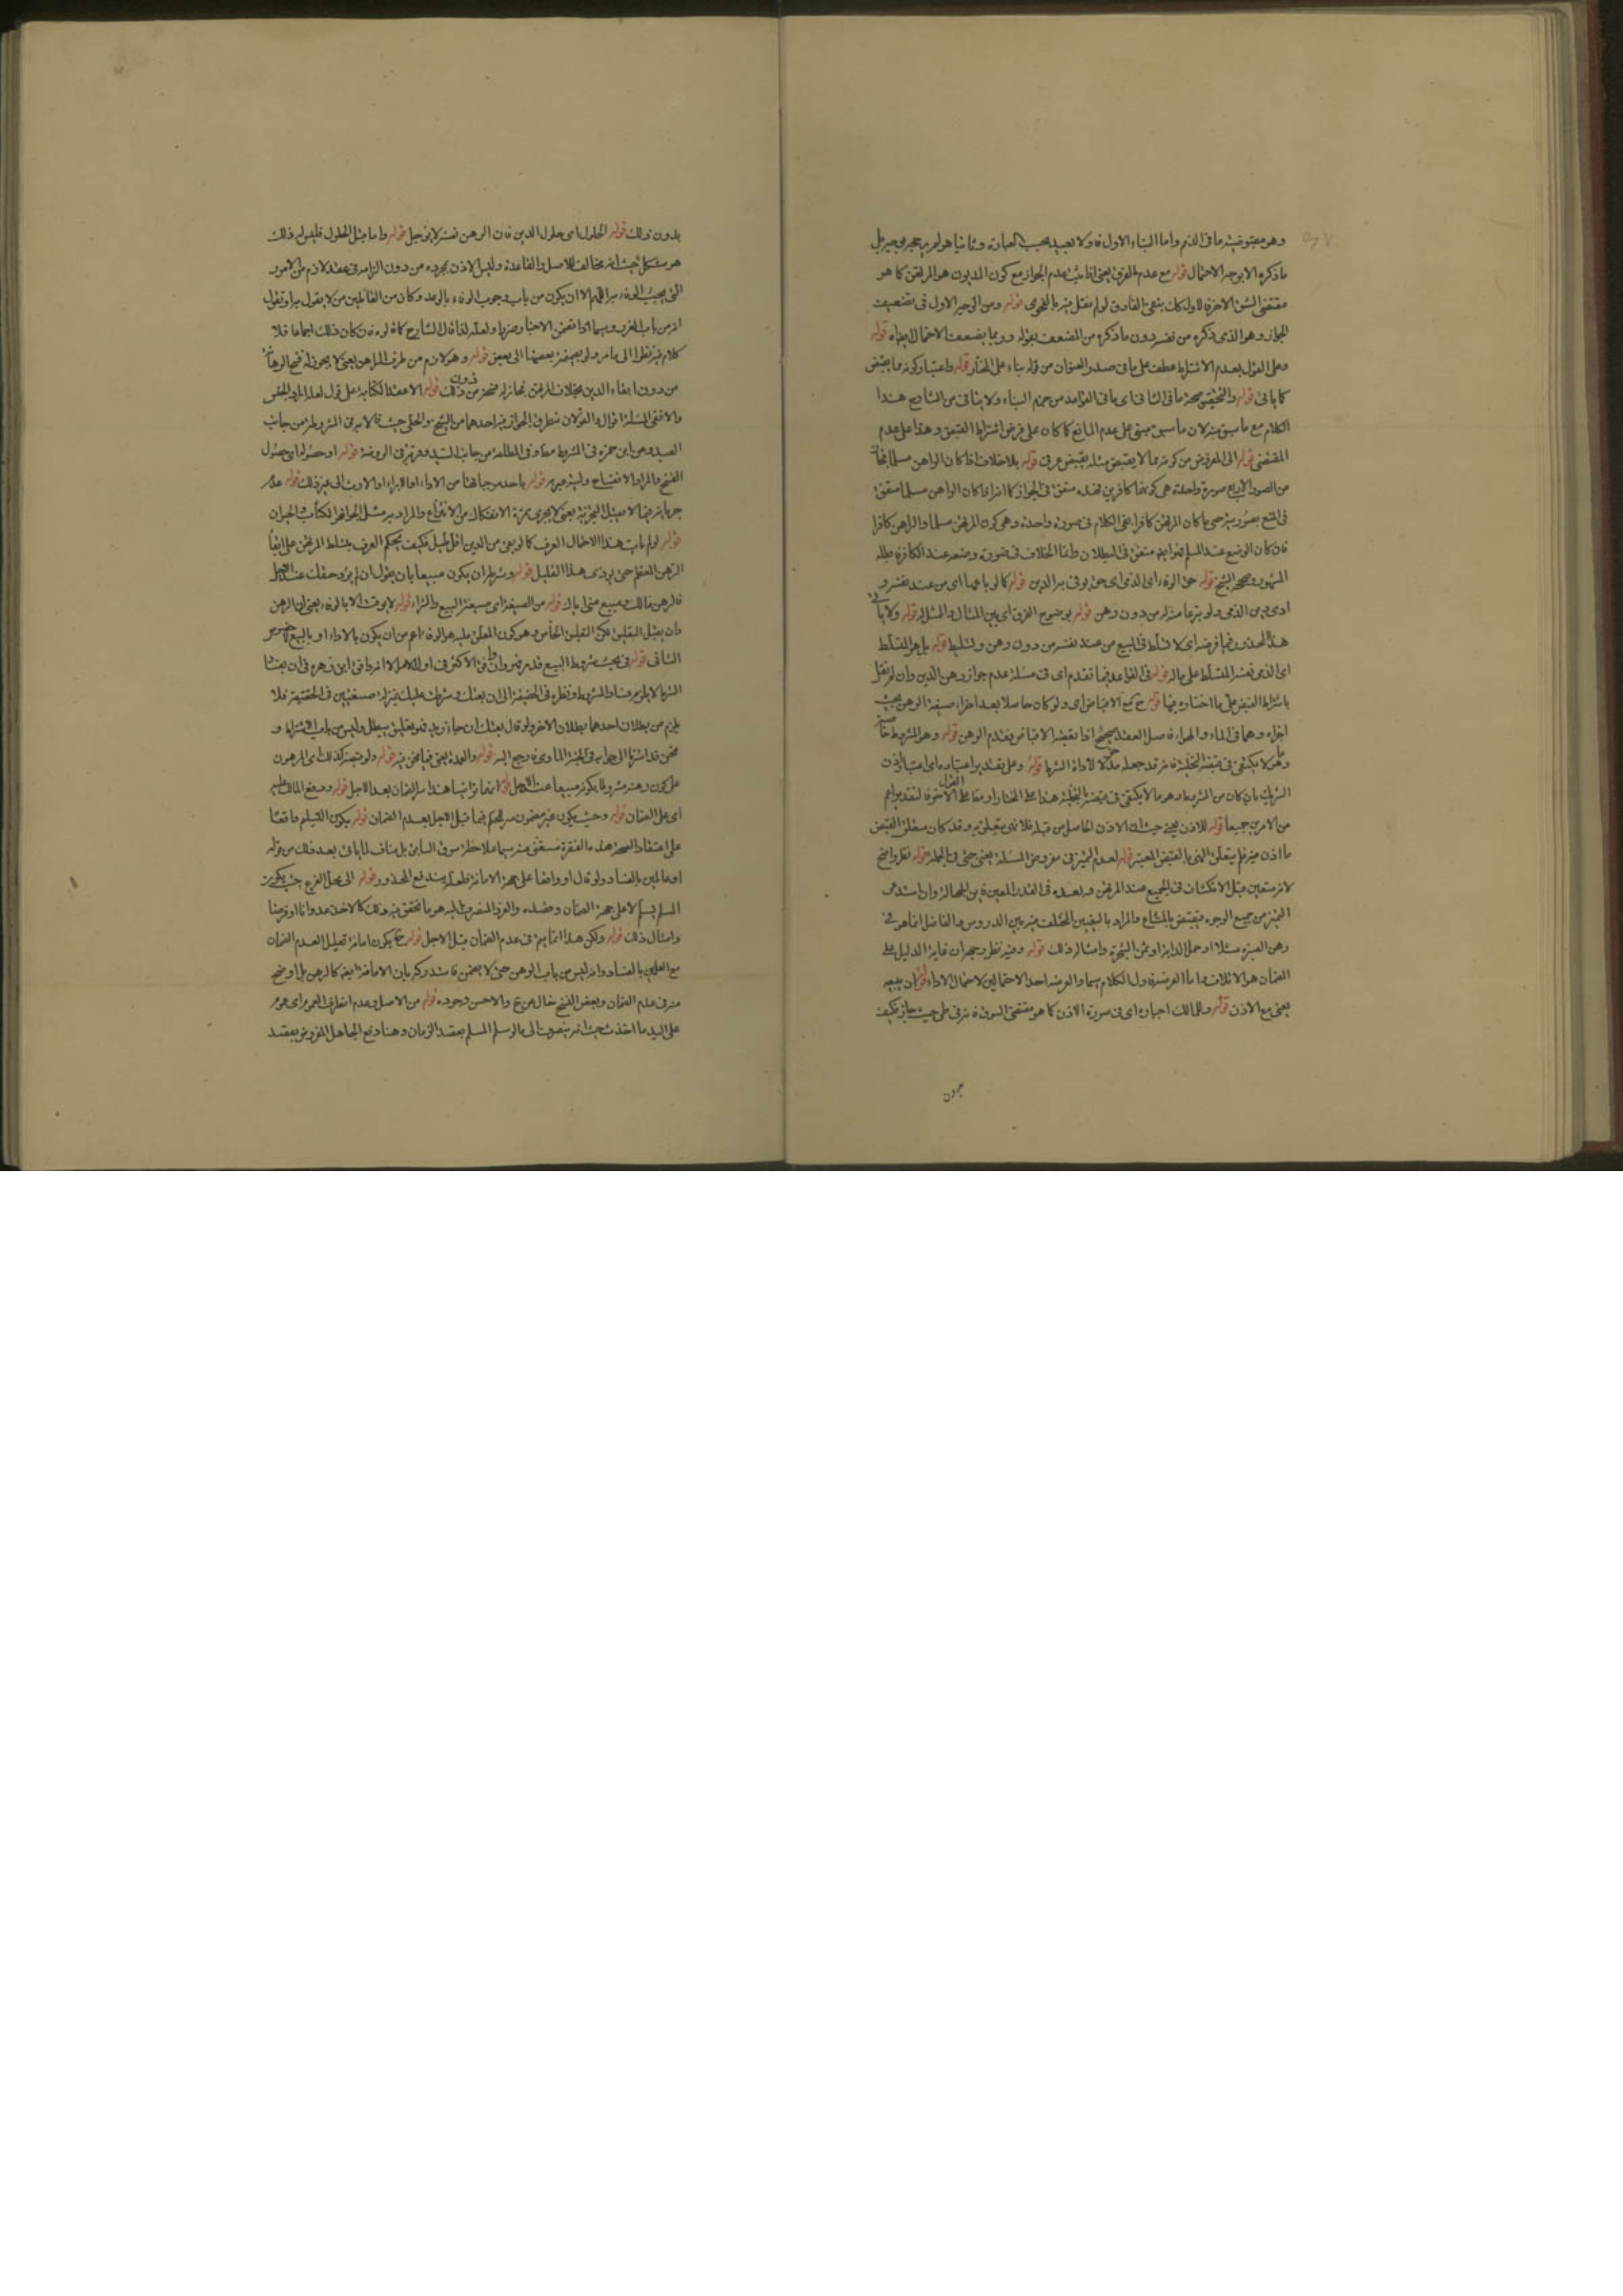 وهو مقبوضية ما في الذم واما البناء الاول فلا بعيد بحسب العبارة وثانيا هو
ما ذكره الا بوجه الاحتمال قوله مع عدم الفرق يعني اذا ثبت عدم الجواز مع كون المديون هو المرتهن كما هو
مقتضى الشق الاخر فالاول كك ينفي الفارق لو لم نقل فيه بالفحوى قوله ومن الوجه الاول في تضعيف
الجواز وهو الذي ذكره من نفسه دون ما ذكره من المضعف بقوله وربما يضعف الاحتمال قوله
وعلى القول بعدم الاشتراط عطف على ما في صدر العنوان من قوله بناء على المختار قوله واعتبار كونه مما يقبض
كما يأتي قوله والتحقيق صحة ما في الشافي اى ما في القواعد من عدم البناء ولا ينافي من الشارح هذا
الكلام مع ما سبق منه لان ما سبق مبني على عدم المانع كما كان على فرض اشتراط القبض وهذا على عدم
المقتضى قوله الى المفروض من كونه مما لا يقبض مثله بقبض عرفي قوله بلا خلاف اذا كان الراهن مسلما
من الصور الاربع صورة واحدة هي كونهما كافرين فهذه متفق في الجواز كما انه اذا كان الراهن مسلما متفق
في المنع بصورتيه حتى ما كان المرتهن كافرا بقي الكلام في صورة واحدة وهي كون المرتهن مسلما والراهن كافرا
فان كان الوضع عند المسلم فهو ايضا متفق في البطلان وانما الخلاف في صورة وضعه عند الكافر
المشهور وصحح الشيخ قوله حق الوفاء اى الذمي اى حق يوفي به الدين قوله كما لو باعها اى من عند نفسه و
ادى دين الذمي ولو تبرعا منه له من دون رهن قوله بوضوح الفرق اى بين المثال والممثل له قوله ولا يأتي
هذا المحذور فيما فرضه اى لا تسلط في البيع من عند نفسه من دون رهن وتسليط قوله
اى الذمي نفسه المتسلط على ماله قوله في القواعد فيما تقدم اى في مسئلة عدم جواز رهن الدين وان لم نقل
باشتراط القبض على ما اختاره فيها قوله مع الاقباض اى ولو كان حاصلا بعد اجزاء صيغة الرهن بحيث
اجزاء وهما في الماء والهواء فاصل العقد صحيح اذا تعقبه الاقباض بعد الرهن قوله وهو المشروط خاصة
وهو لا يكتفي في قبضه التخلية فانه قد جعله هذا لاداة الشرط قوله وعلى تقدير اعتباره اى اعتبار اذن
الشريك بان كان من الشروط وهو ما لا يكتفي في قبضه بالتخلية هذا على المختار او مطلقا على القول الاخر فالتقدير اعم
من الامرين جميعا قوله للاذن يعني حيث ان الاذن الحاصل من قبله فلا نهي يتعلق به وقد كان متعلق القبض
ما اذن فيه فلم يتعلق النهي بالقبض المعتبر قوله لعدم التميز في مفروض المسئلة يعني حتى في الجملة قوله نظر واضح
لانه متعين قبل الانكشاف في الجميع عند المرتهن وبعده في القدر المعين فاين الجهالة وان استدعى
التميز من جميع الوجوه فينتقض بالمشاع والمراد بالتعيين المختلف فيه بين الدروس والفاضل انما هو في
رهن العبرة مثلا او حمل الدابة او ثمر الشجرة وامثاله ذلك قوله وفيه نظر وجهه ان غاية الدليل على
الضمان هو الاتلاف واما العرضة فاول الكلام سيما والعرضة احد الاحتمالين لاحتمال الاداء قوله ان يبيعه
يعني مع الاذن قوله وللمالك اجباره اى في صورة الاذن كما هو مقتضى السوق فترقى على حيث جاز فكيف
بدون
بدون ذلك قوله الحلول اى حلول الدين فان الرهن نفسه لا يؤجل قوله واما قبل الحلول فليس له ذلك
هو مشكل حيث انه مخالف للاصل والقاعدة وليس الاذن بمجرده من دون الزامه في عقد لازم من الامور
التي يجب الوفاء بها اللهم الا ان يكون من باب وجوب الوفاء بالوعد وكان من القائلين من لا يقول به او تقول
انه من باب الغرور سيما اذا تضمن الاجبار ضررا ولعله لذا قال الشارح كما قاله فان كان ذلك اجماعا فلا
كلام فيه نظرا الى ما مر ولو بضميمة بعضها الى بعض قوله وهو لازم من طرف الراهن يعني لا يجوز له فسخ الرهانة
من دون ايفاء الدين بخلاف المرتهن فجاز له فسخه من دون ذلك قوله الا عقد الكتابة على قول لعل المراد البعض
والا ففي المسئلة اقوال والقولان بتطرق الجواز فيه احدهما من الشيخ والحلي حيث قالا به في المشروطة من جانب
العبد ومن ابن حمزة في المشروط معاوفي المطلقة من جانب السيد وقربه في الروضة قوله او حصوله اى حصول
الفسخ والمراد الانفساخ وليعتبر به قوله باحد موجباتها من الاداء او الابراء او الارث الى غير ذلك قوله عدم
جريانه فيما لا يقبل التجزية يعني لا يجري ثمرة الانفكاك من الانتزاع والمراد به مثل الجواهر والكتاب والحيوان
قوله لو لم يأت هذا الاحتمال العرف كما لو بقي من الدين اقل قليل فكيف يحكم العرف بتسلط المرتهن على ابقاء
الرهن العظيم حتى يؤدى هذا القليل قوله وشرط ان يكون مبيعا بان يقول ان لم يؤد حقك عند الاجل
فالرهن مالك ومبيع مني اياك قوله من الصيغة اى صيغة البيع والشراء قوله لا يوقت الا بالوفاء يعني ان الرهن
وان يقبل التعليق لكن التعليق الخاص وهو كون المعلق عليه هو الوفاء اعم من ان يكون بالاداء او بالبيع
الثاني قوله في بحث شروط البيع قد مر
الشرط لا يلزم فساد المشروط ونظره في الحقيقة الى ان بعتك وشرطت عليك بمنزلة صيغتين في الحقيقة فلا
يلزم من بطلان احدهما بطلان الاخر ولو قال بعتك ان جاء زيد فهو تعليق يبطل وليس من باب الاشتراط و
نحن قد اشرنا الى جوابه فارجع اليه قوله والعمدة يعني فيما نحن فيه قوله ولو قبضه كذلك اى المرهون
على كون رهنه مشروطا بكونه مبيعا عند الاجل قوله ضمانا ايضا هذا سر الضمان بعد الاجل قوله ودفع المالك
اى على الضمان قوله وحيث يكون غير مضمون سر الحكم فيما قبل الاجل بعدم الضمان قوله يكون التسليم واقعا
على اعتقاد الصحة هذه الفقرة مستغنى عنه سيما ملاحظة سوق السابق بل مناف لما يأتي بعد ذلك من قوله
او عالمين بالفساد ولو قال او واقعا على جهة الامانة فلعله يندفع المحذور قوله الى محل الفرع حيث يكون
المسلم يسلم لا على جهة الضمان وضده والعرف المنصرف اليه هو ما تحقق فيه ذلك كالاخذ عدوانا او قرضا
وامثال ذلك قوله ولكن هذا انما يتم في عدم الضمان قبل الاجل قوله يكون امانة تعليل لعدم الضمان
مع العلمين بالفساد وانه ليس من باب الرهن حتى لا يضمن فاستدركه بان الامانة ايضا كالرهن بل اوضح
منه في عدم الضمان وبعض النسخ خال عن مع والاحسن وجوده قوله من الاصل وعدم انصراف العموم اى عموم
على اليد ما اخذت حيث انه ينصرف الى ما لو سلم المسلم بعقد الزمان وهنا دفع الجاهل المفروض بعقد